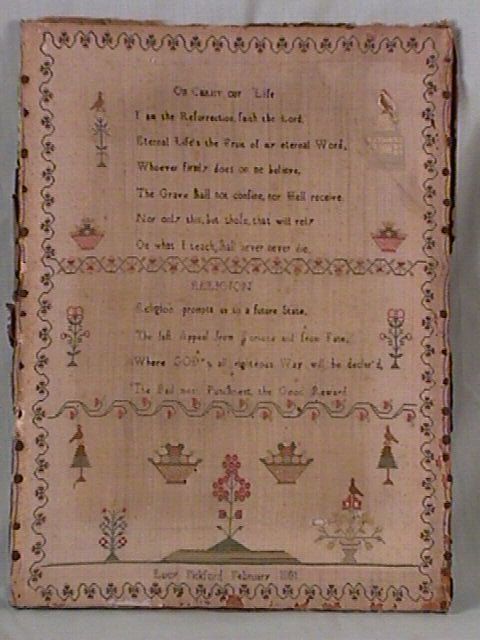 On Christ our Life
I am the Resurrection, saith the Lord,
Eternal Life's the Fruit of my eternal Word,
Whoever firmly does on me believe,
The Grave shall not confine, nor Hell receive.
Nor only this, but those, that will rely
On what I teach, shall never never die.
RELIGION
Religion prompts us to a future State,
The last Appeal from Fortune and from Fate,
Where GOD's all righteous Way will be declar'd,
The Bad meet Punishment, the Good Reward
Lucy Pickford February